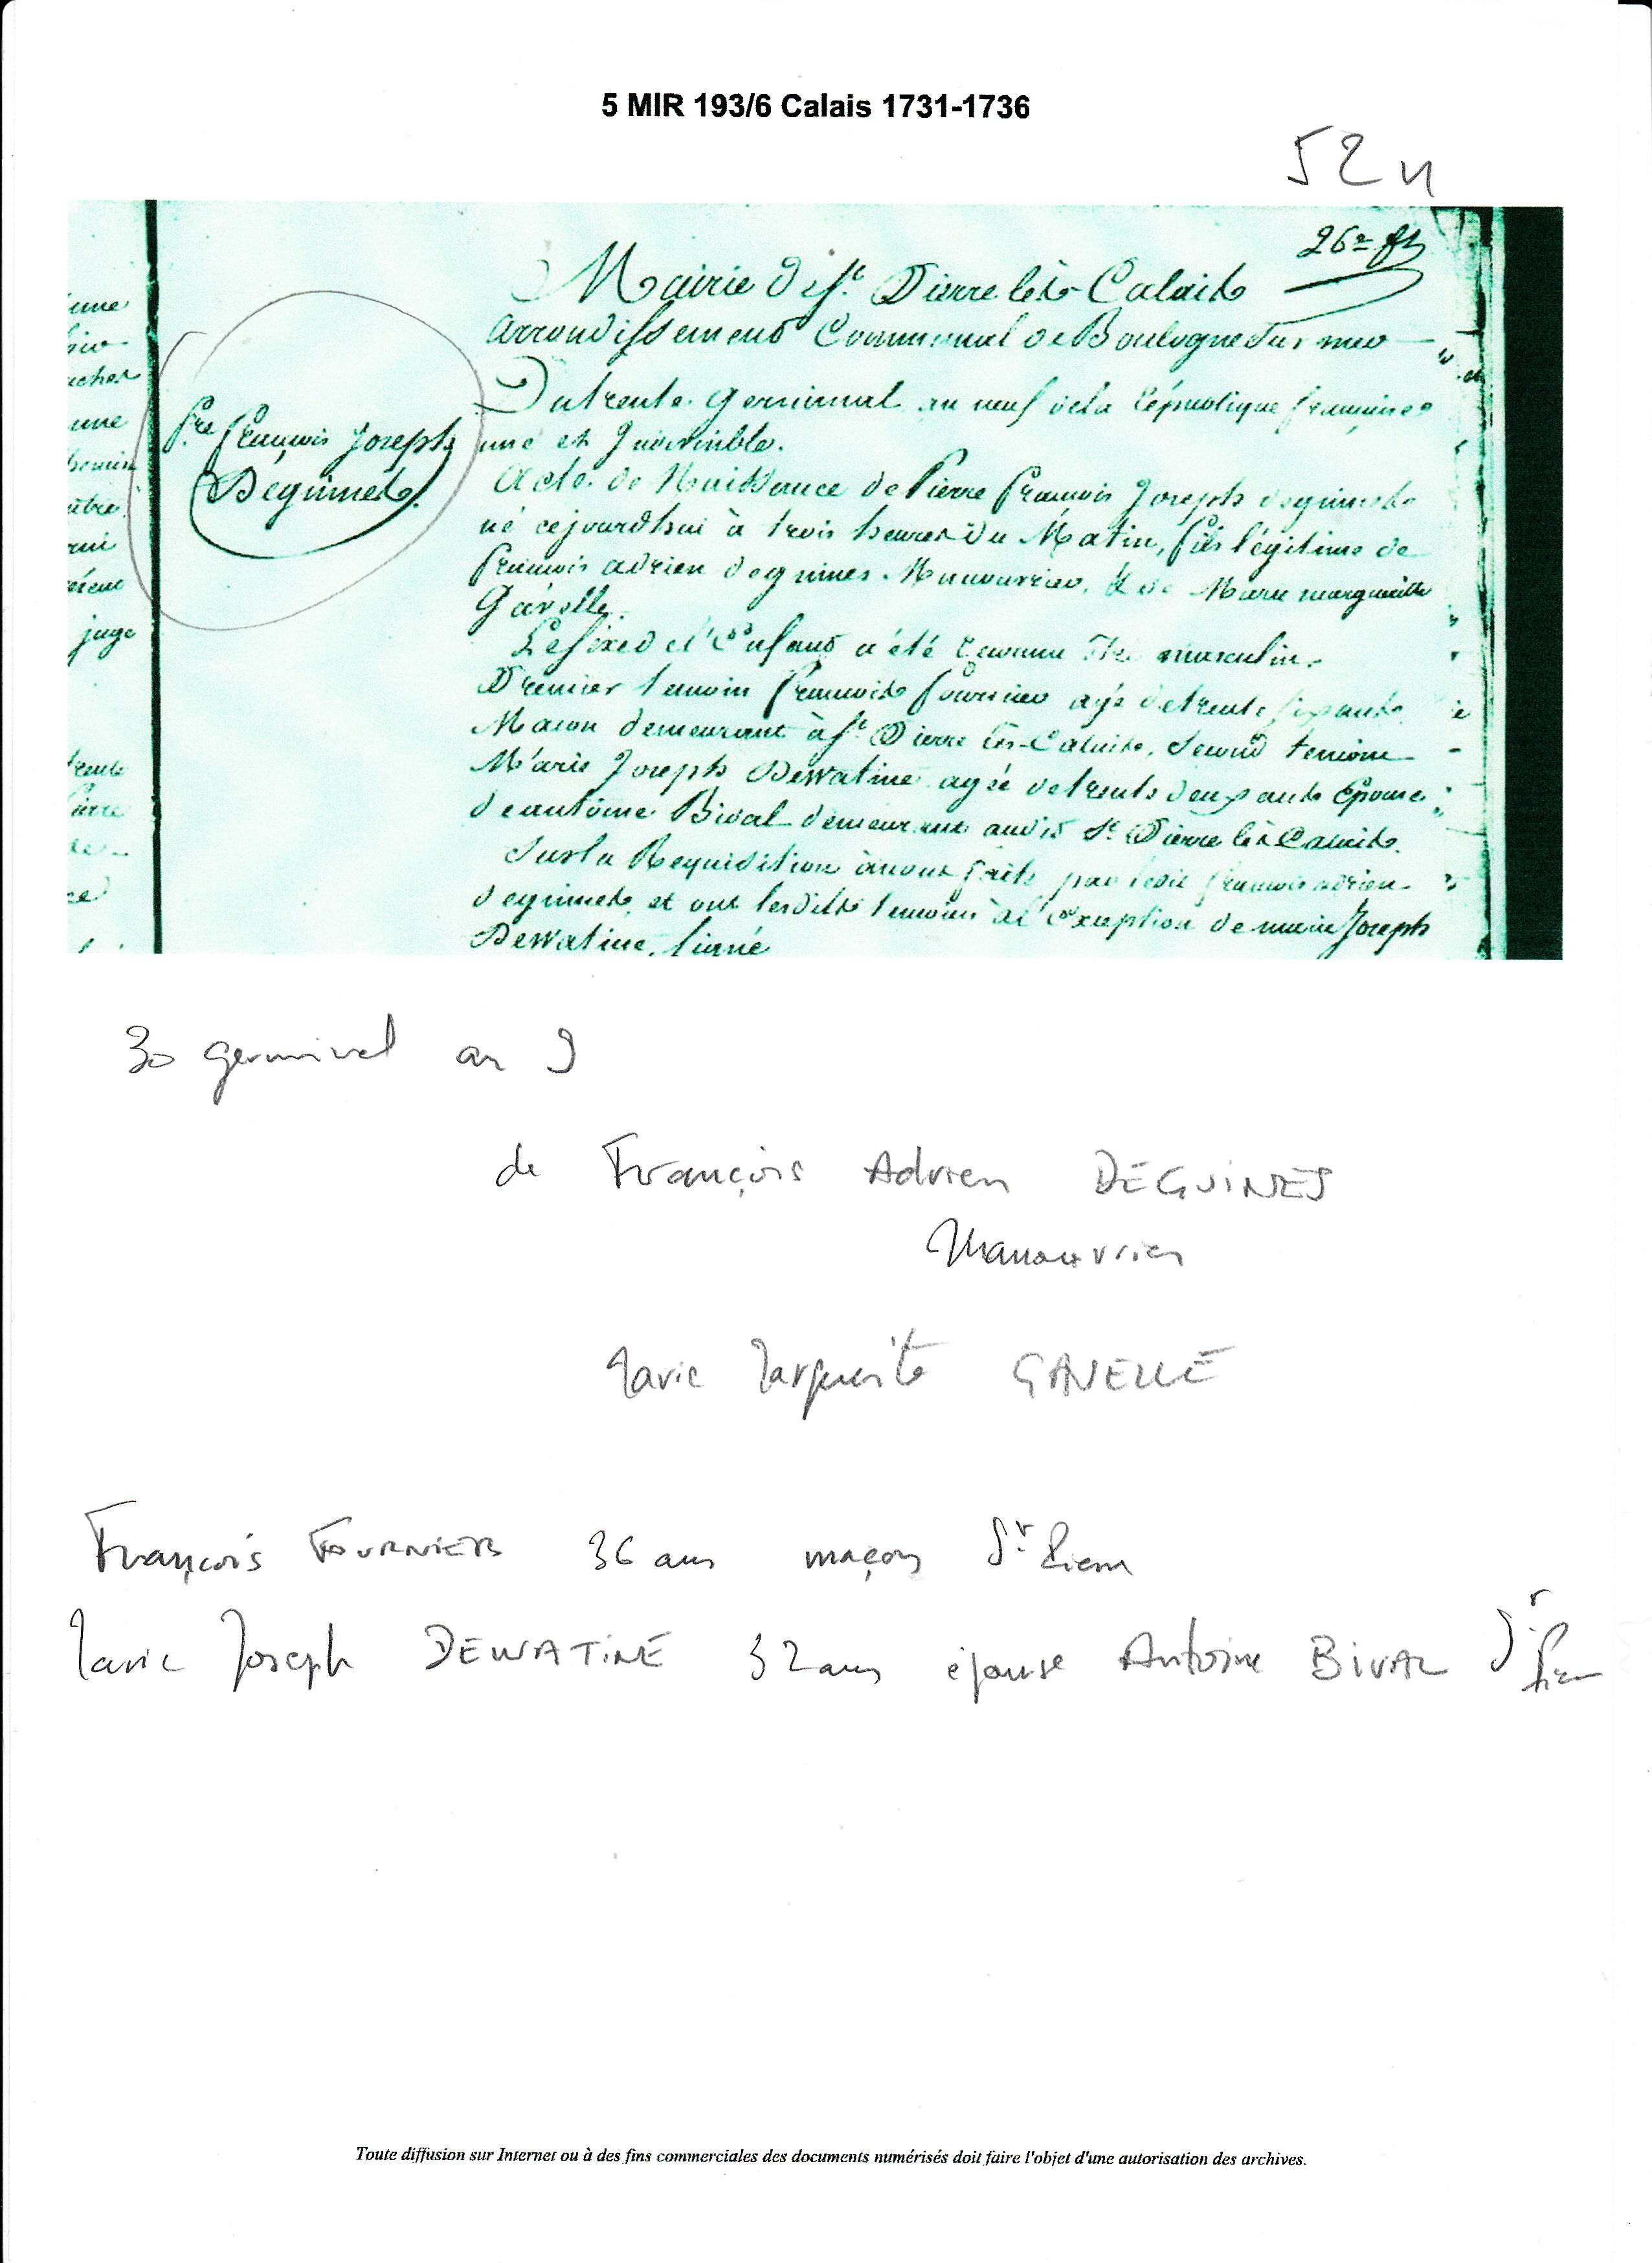 5 MIR 193/6 Calais 1731-1736
52
26e ft
Mairie de St. Pierre lès-Calais
arrondissement Communal de Boulogne sur mer
Du trente germinal an neuf de la République française
une et Indivisible.
Pre françois Joseph
Deguines.
Acte de Naissance de Pierre françois Joseph deguines
né cejourdhui à trois heures du Matin, fils légitime de
françois adrien deguines Manouvrier, & de Marie marguerite
Gavelle.
Le sexe de l'Enfant a été reconnu être masculin.
Premier temoin françois fournier agé de trente six ans
Macon demeurant à St. Pierre lès-Calais, Second temoin
Marie Joseph Dewatine agée de trente deux ans Epouse
de antoine Bival demeurant audit St. Pierre lès Calais.
Sur la Requisition à nous faite par ledit françois adrien
deguines, et ont lesdits temoins à l'exception de marie Joseph
Dewatine, signé
une
acher
une
juge
trente
Pierre
30 germinal an 9
de François Adrien DEGUINES
Manouvrier
Marie Marguerite GAVELLE
François FOURNIER 36 ans maçon St Pierre
Marie Joseph DEWATINE 32 ans épouse Antoine BIVAL St Pierre
Toute diffusion sur Internet ou à des fins commerciales des documents numérisés doit faire l'objet d'une autorisation des archives.